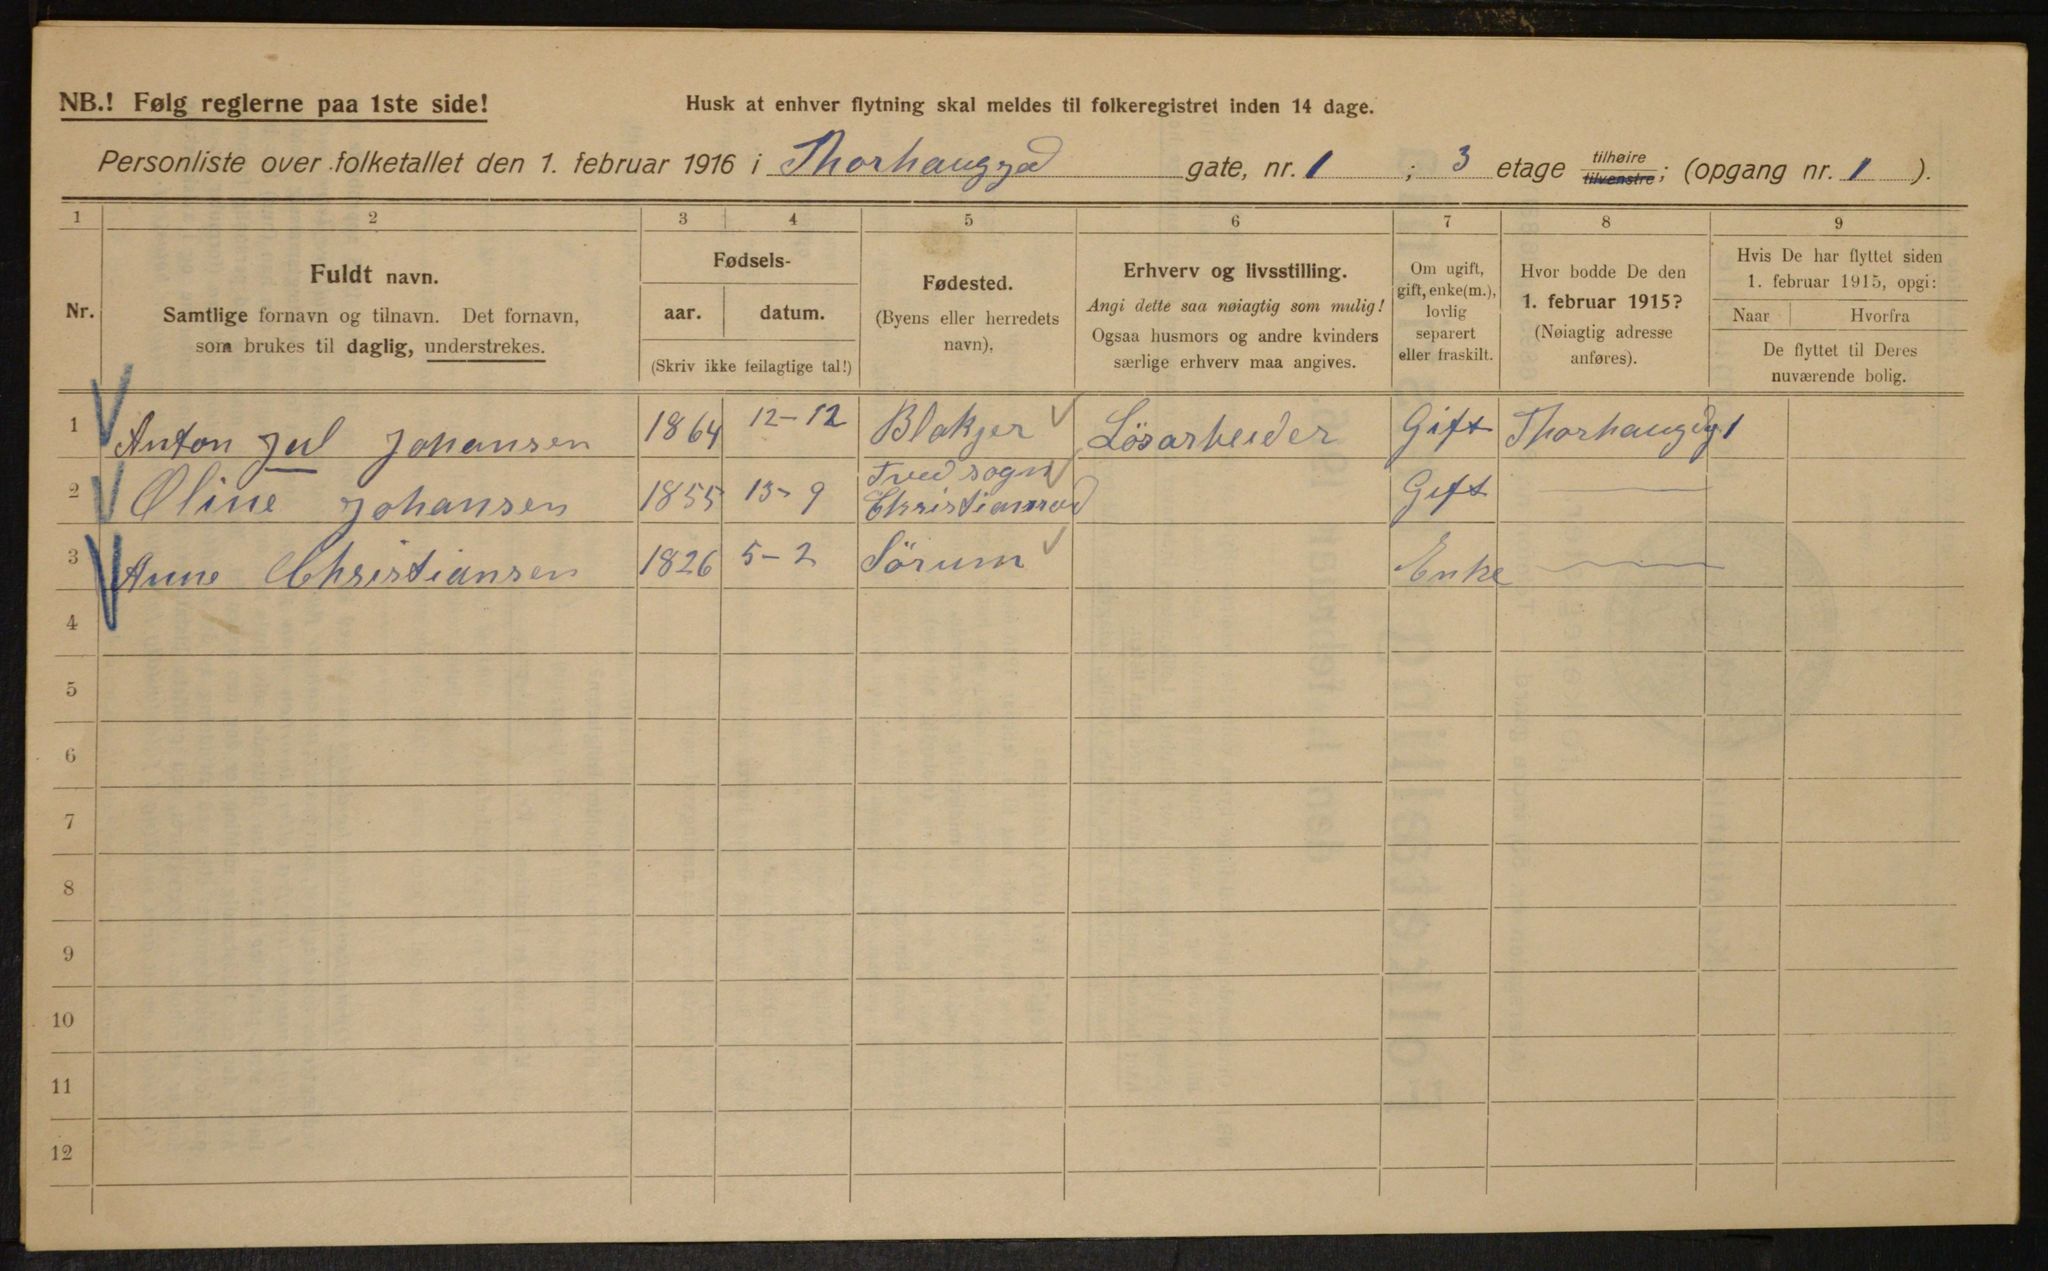 NB.! Følg reglerne paa 1ste side!
Husk at enhver flytning skal meldes til folkeregistret inden 14 dage.
Personliste over folketallet den 1. februar 1916 i Thorhauggd gate, nr. 1 ; 3 etage tilhøire tilvenstre; (opgang nr. 1 ).
1 2 3 4 5 6 7 8 9
Nr.
Fuldt navn.
Samtlige fornavn og tilnavn. Det fornavn,
som brukes til daglig, understrekes.
Fødsels-
aar. datum.
(Skriv ikke feilagtige tal!)
Fødested.
(Byens eller herredets
navn).
Erhverv og livsstilling.
Angi dette saa nøiagtig som mulig!
Ogsaa husmors og andre kvinders
særlige erhverv maa angives.
Om ugift,
gift, enke(m.),
lovlig
separert
eller fraskilt.
Hvor bodde De den
1. februar 1915?
(Nøiagtig adresse
anføres).
Hvis De har flyttet siden
1. februar 1915, opgi:
Naar Hvorfra
De flyttet til Deres
nuværende bolig.
1 Anton Jul Johansen 1864 12-12 Blakjer Lösarbeider Gift Thorhauggd 1
2 Oline Johansen 1855 13-9 Tved sogn Christiansad Gift
3 Anne Christiansen 1826 5-2 Sörum Enke
4
5
6
7
8
9
10
11
12